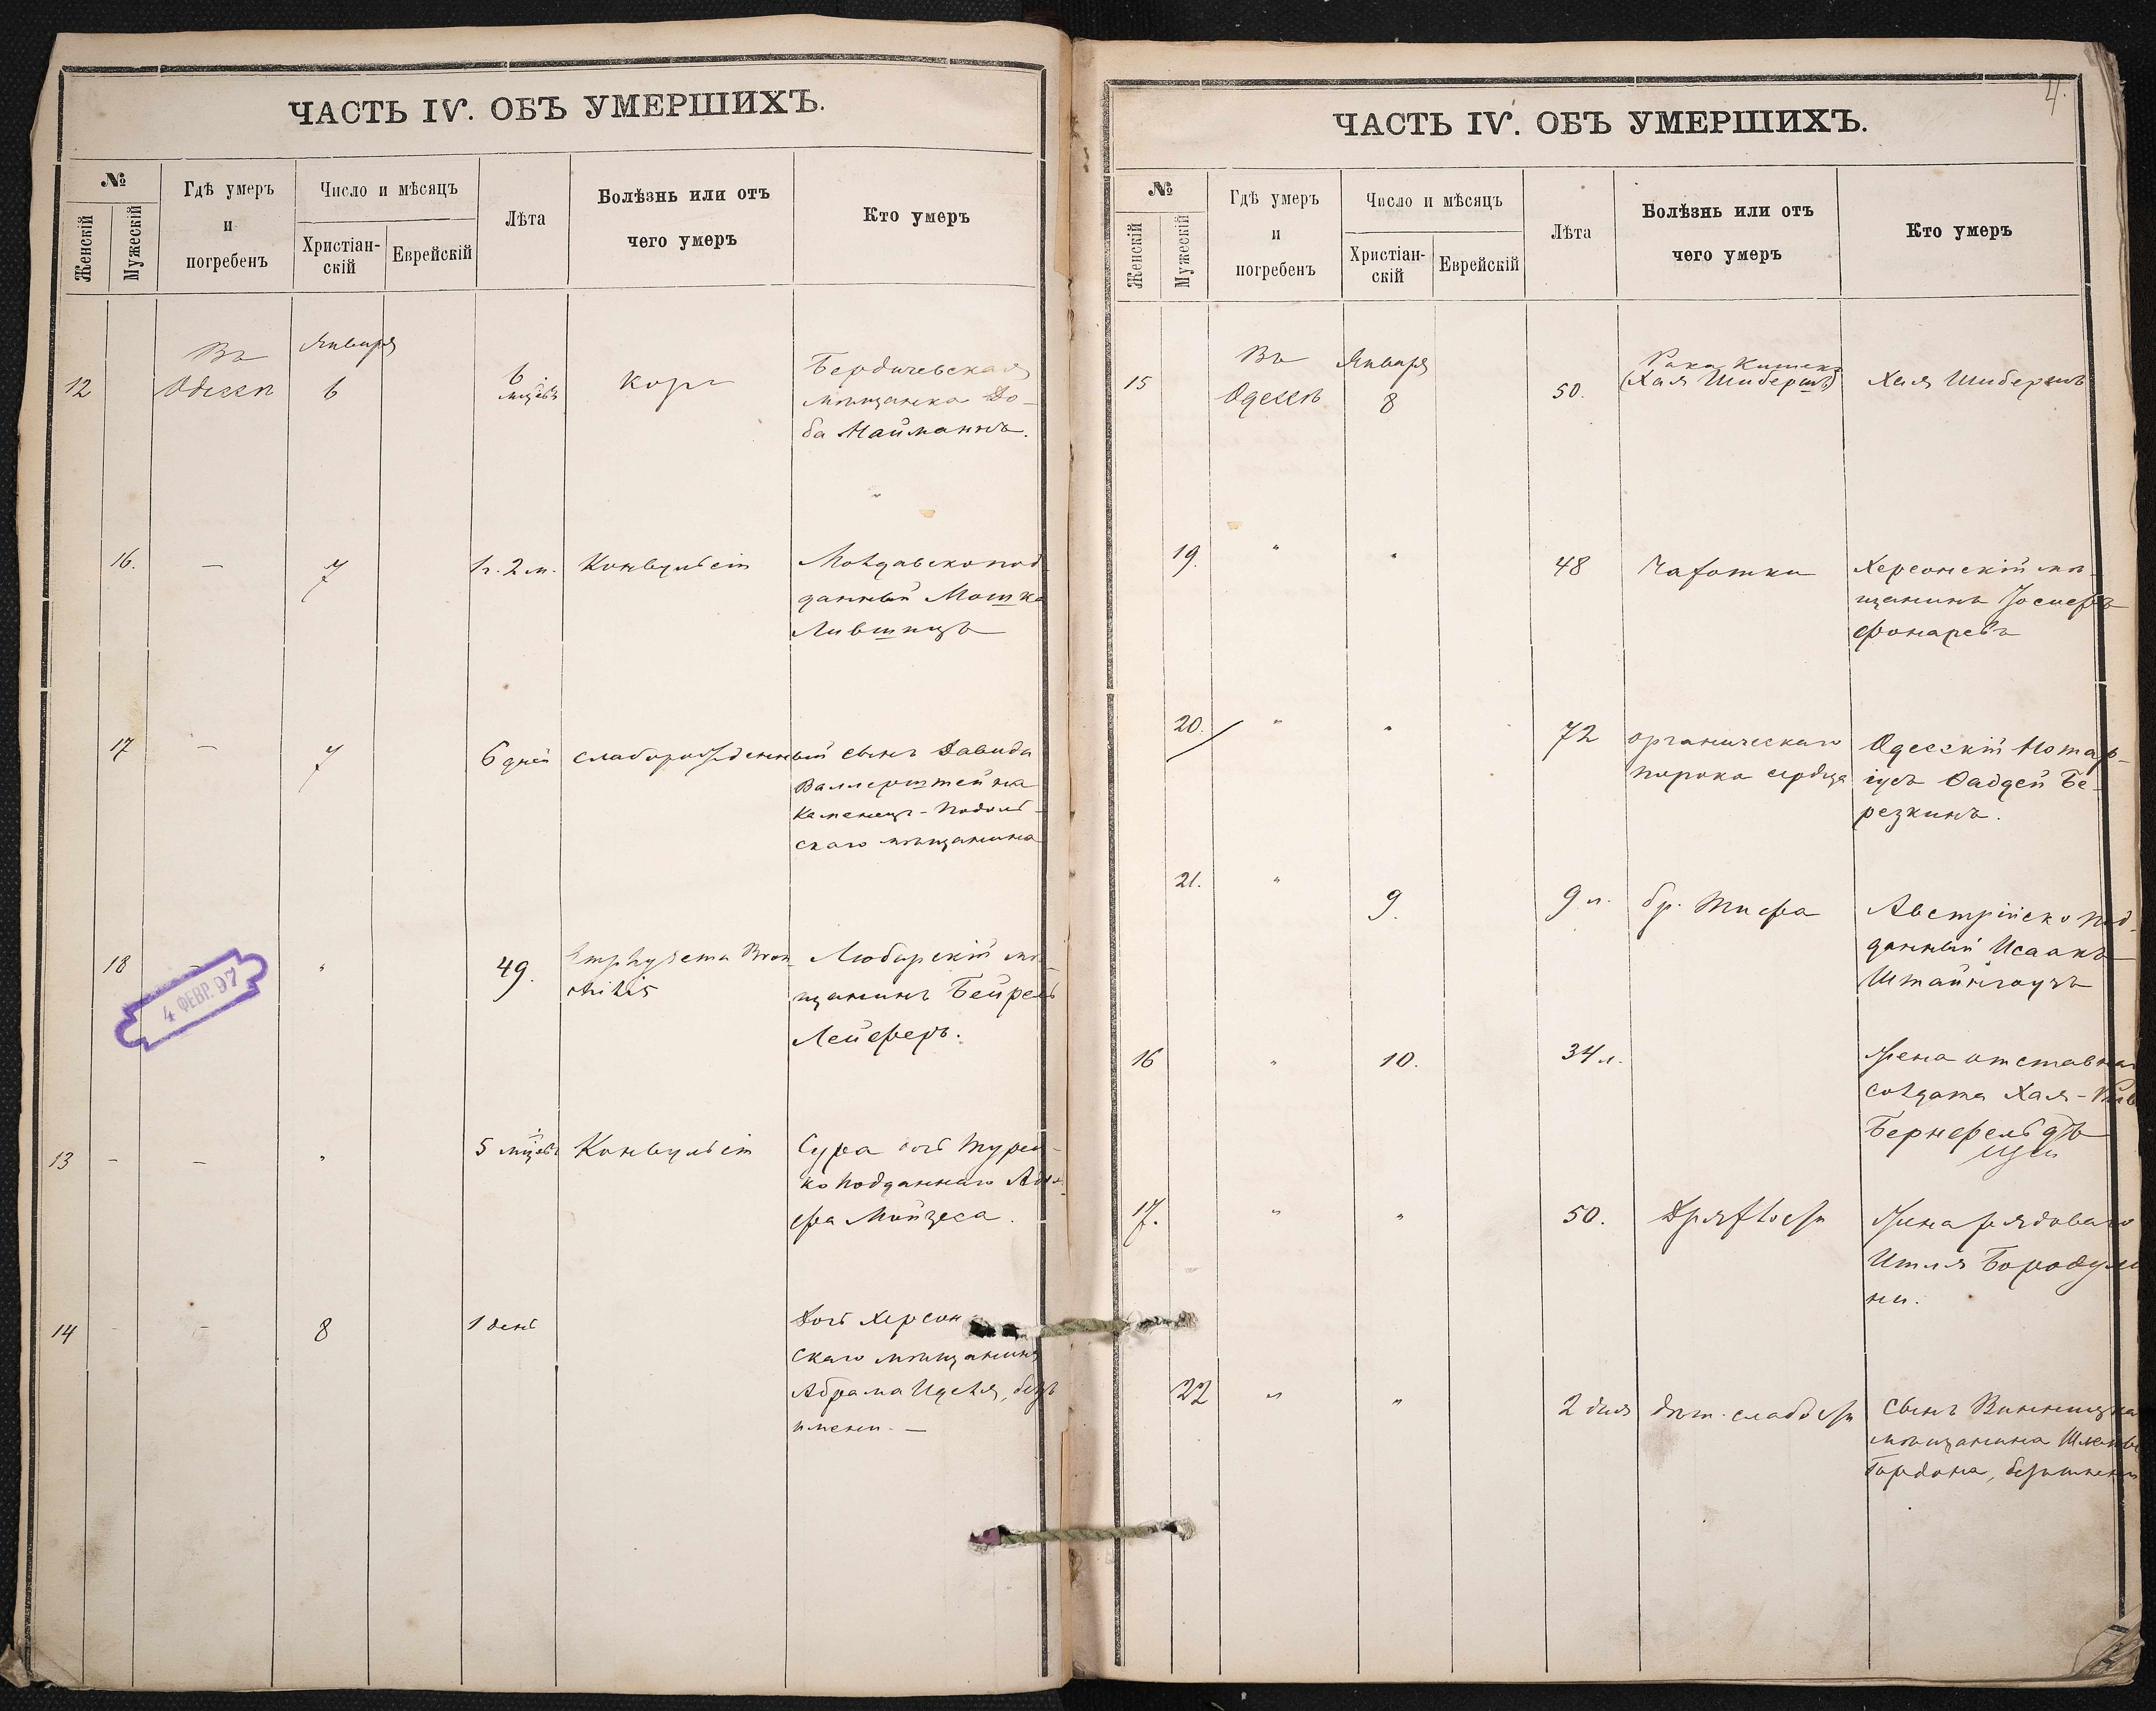 ЧАСТЬ IV. ОБЪ УМЕРШИХЪ.
№
Женскій
Мужескій
Гдѣ умеръ
и
погребенъ
Число и мѣсяцъ
Христіан-
скій
Еврейскій
Лѣта
Болѣзнь или отъ
чего умеръ
Кто умеръ
12
Въ
Одессѣ
Января
6
6
мѣсяц.
Корь
Бердичевская
мѣщанка До-
ба Найманъ.
16.
—
7
1 г. 2 м.
Конвульсіи
Молдавскопод-
данный Мошка
Лившицъ
17
—
7
6 дней
слаборожденный
сынъ Давида
Валлерштейна
Каменецъ-Подоль-
скаго мѣщанина
18
—
"
49.
Emphysema Bron-
chitis
Любарскій мѣ-
щанинъ Бейрель
Лейферъ.
4 ФЕВР. 97
13
—
—
"
5 мѣсяц.
Конвульсіи
Сура дочь Турец-
ко подданнаго
Мойзеса.
14
—
—
8
1 день
Дочь Херсон-
скаго мѣщанина
Абрама Иделя, безъ
имени. —
ЧАСТЬ IV. ОБЪ УМЕРШИХЪ.
4.
№
Женскій
Мужескій
Гдѣ умеръ
и
погребенъ
Число и мѣсяцъ
Христіан-
скій
Еврейскій
Лѣта
Болѣзнь или отъ
чего умеръ
Кто умеръ
15
Въ
Одессѣ
Января
8
50.
Рака Кишекъ
(Хая Шибершъ)
Хая Шибершъ
19.
"
"
48
Чахотки
Херсонскій мѣ-
щанинъ Іосифъ
Фонаревъ
20.
"
"
72
органическаго
порока сердца
Одесскій Нотар-
іусъ Фадей Бе-
резкинъ.
21.
"
9.
9 л.
бр. Тифа
Австрійско под-
данный Исаакъ
Штайнгаузъ
16
"
10.
34 л.
Жена отставнаго
солдата Хая-
Бернфельдъ
17.
"
"
50.
Дряхлости
Жена рядоваго
Итля Бородули
ни.
22
"
"
2 дня
дѣт. слабости
Сынъ Винницкаго
мѣщанина
Гордона, безъ имени